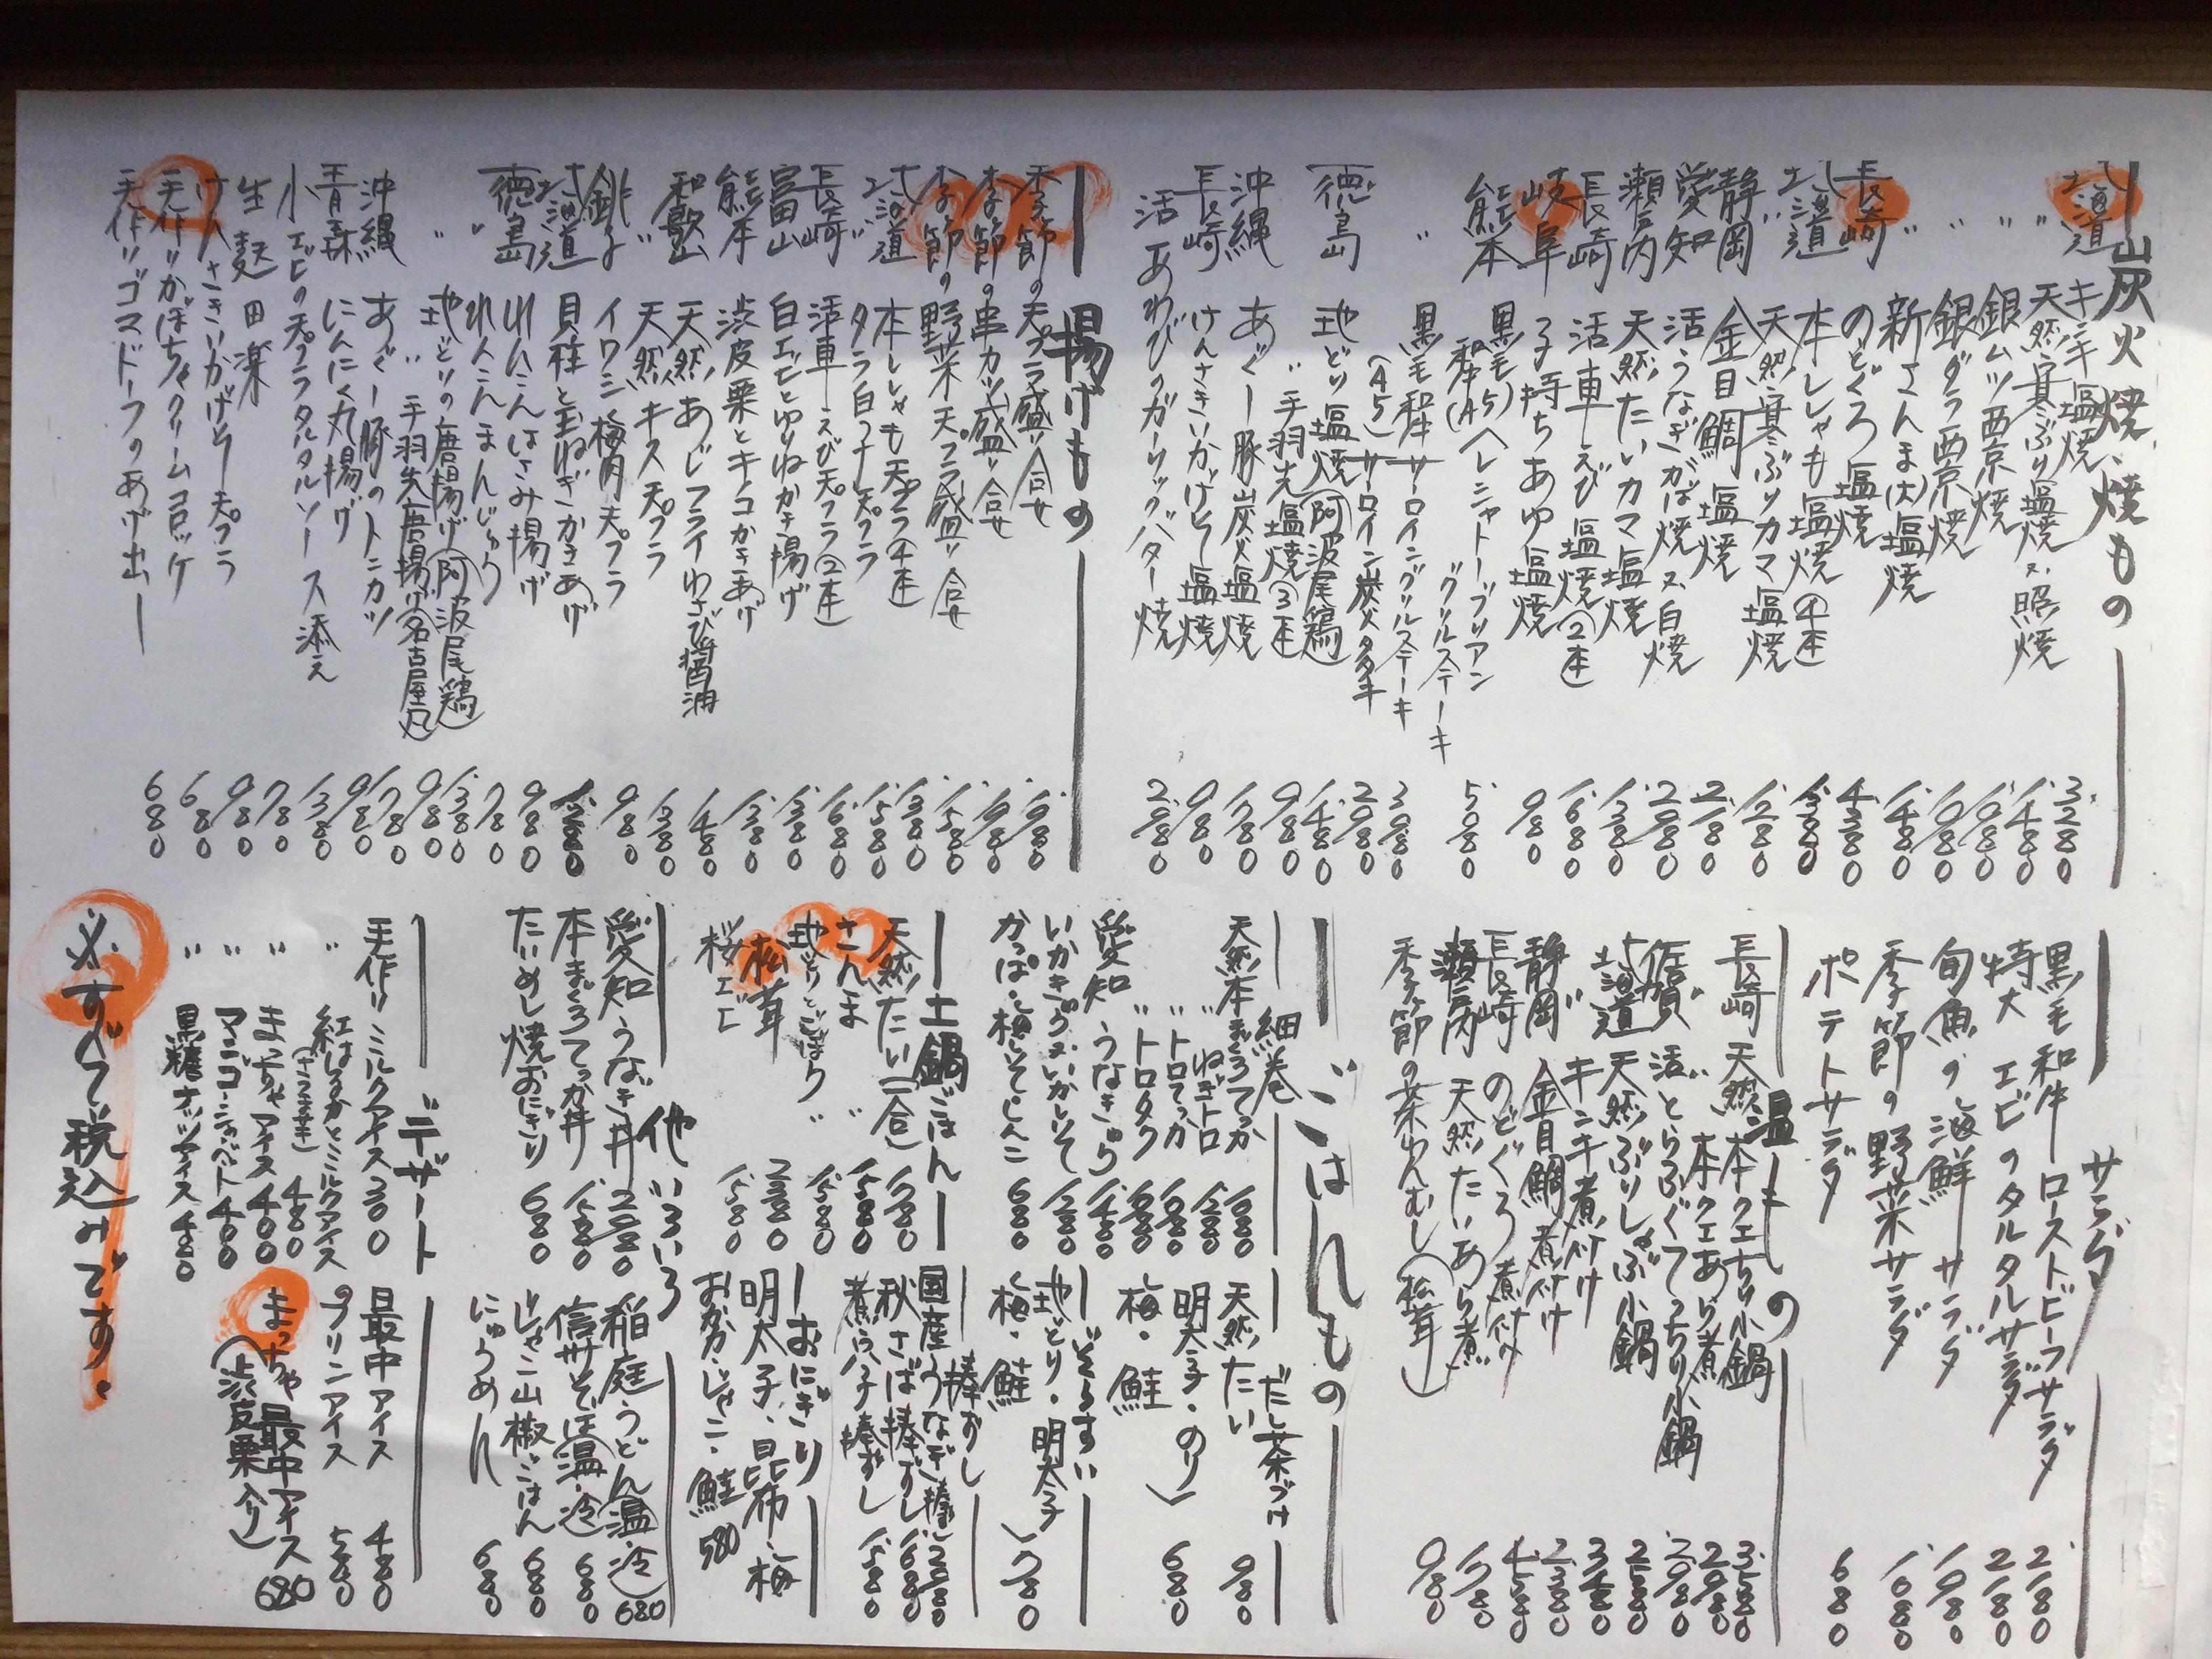 炭火焼、焼もの
北海道 キンキ塩焼 3.280
〃 天然寒ぶり塩焼又照焼 1.480
〃 銀ムツ西京焼 1.980
〃 銀ダラ西京焼 1.980
〃 新さんま(大)塩焼 1.480
長崎 のどぐろ塩焼 4.380
〃 本ししゃも塩焼④本 1.380
北海道 天然寒ぶりカマ塩焼 1.280
静岡 金目鯛塩焼 2.180
愛知 活うなぎかば焼又白焼 2.980
瀬戸内 天然たいカマ塩焼 1.380
長崎 活車えび塩焼②本 1.680
岐阜 子持ちあゆ塩焼 980
熊本 黒毛和牛(A5)ヘレシャトーブリアングリルステーキ 5.080
〃 黒毛和牛サーロイングリルステーキ 3.980
(A5)サーロイン炭火タタキ 2.980
徳島 地どり塩焼(阿波尾鶏) 1.480
〃手羽先塩焼③本 980
沖縄 あぐー豚炭火塩焼 1.780
長崎 けんさきいかげそ塩焼 980
活あわびのガーリックバター焼 2.980
揚げもの
季節の天プラ盛り合せ 1.980
季節の串カツ盛り合せ 1.980
季節の野菜天プラ盛り合せ 1.580
北海道 本ししゃも天プラ④本 1.380
〃 タラ白子天プラ 1.580
長崎 活車えび天プラ②本 1.680
富山 白エビとゆりねかき揚げ 1.380
熊本 渋皮栗とキノコかきあげ 1.380
和歌山 天然あじフライわさび醤油 1.480
〃 天然キス天プラ 1.380
銚子 イワシ梅肉天プラ 980
北海道 貝柱と玉ねぎかきあげ 1.280
徳島 れんこんはさみ揚げ 980
〃 れんこんまんじゅう 780
〃 地どりの唐揚げ(阿波尾鶏) 1.380
〃 〃 手羽先唐揚げ(名古屋風) 980
沖縄 あぐー豚のトンカツ 1.780
青森 にんにく丸揚げ 980
小エビの天プラタルタルソース添え 1.380
生麩田楽 780
けんさきいかげそ天プラ 980
手作りかぼちゃクリームコロッケ 680
手作りゴマドーフのあげ出し 680
サラダ
黒毛和牛ローストビーフサラダ 2.180
特大エビのタルタルサラダ 2.180
旬魚の海鮮サラダ 1.980
季節の野菜サラダ 1.680
ポテトサラダ 680
温もの
長崎 天然本クエちり小鍋 3.580
〃 本クエあら煮 2.980
佐賀 活とらふぐてっちり小鍋 2.980
北海道 天然ぶりしゃぶ小鍋 2.580
〃 キンキ煮付け 3.480
静岡 金目鯛煮付け 2.380
長崎 のどぐろ煮付け 4.580
瀬戸内 天然たいあら煮 1.780
季節の茶わんむし(松茸) 980
ごはんもの
細巻
天然本まぐろてっか 1.680
〃 ねぎトロ 1.280
〃トロてっか 1.680
〃トロタク 1.680
愛知 うなきゅう 1.480
いかきゅう又いかしそ 1.280
かっぱ・梅しそ・しんこ 680
だし茶づけ
天然たい 980
明太子・のり
梅・鮭 680
ぞうすい
地どり・明太子
梅・鮭 780
土鍋ごはん
天然たい(一合) 1.780
さんま 〃 1.580
地どりとごぼう 〃 1.580
松茸 2.380
桜エビ 1.580
棒ずし
国産うなぎ棒ずし 2.280
秋さば棒ずし 1.680
煮穴子棒ずし 1.580
おにぎり
明太子、昆布、梅
おかか・じゃこ・鮭 580
他いろいろ
愛知うなぎ丼 2.980
本まぐろてっか丼 1.580
たいめし焼おにぎり 680
稲庭うどん(温・冷) 680
信州そば(温・冷) 680
じゃこ山椒ごはん 680
にゅうめん 680
デザート
手作りミルクアイス 300
〃 紅はるかとミルクアイス(さつま芋) 480
〃 まっちゃアイス 400
〃 マンゴーシャーベット 400
〃 黒糖ナッツアイス 480
最中アイス 480
プリンアイス 580
まっちゃ最中アイス 680
(渋皮栗入り)
※すべて税込みです。